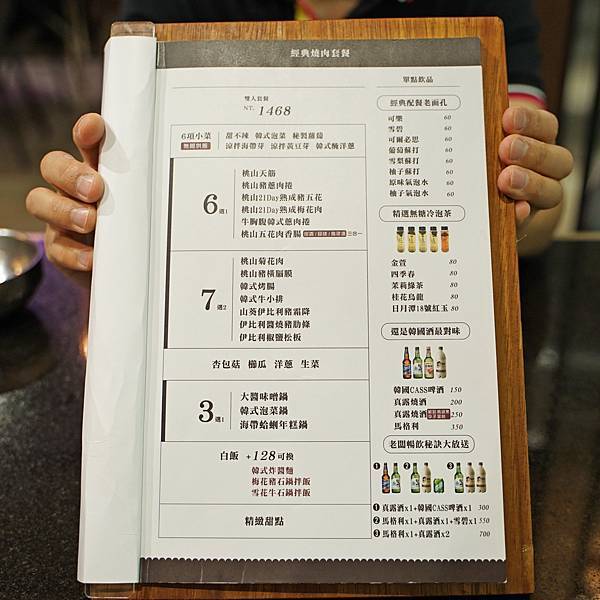 經典燒肉套餐
雙人套餐
NT. 1468
6項小菜
無限供應
甜不辣 韓式泡菜 秘製蘿蔔
涼拌海帶芽 涼拌黃豆芽 韓式醃洋蔥
6選1
桃山天筋
桃山豬蔥肉捲
桃山21Day熟成豬五花
桃山21Day熟成梅花肉
牛胸腹韓式蔥肉捲
桃山五花肉香腸
三合一
7選2
桃山菊花肉
桃山豬橫膈膜
韓式烤腸
韓式牛小排
山葵伊比利豬霜降
伊比利醬燒豬肋條
伊比利椒鹽松板
杏包菇 櫛瓜 洋蔥 生菜
3選1
大醬味噌鍋
韓式泡菜鍋
海帶蛤蜊年糕鍋
白飯 +128可換
韓式炸醬麵
梅花豬石鍋拌飯
雪花牛石鍋拌飯
精緻甜點
單點飲品
經典配餐老面孔
可樂 60
雪碧 60
可爾必思 60
葡萄蘇打 60
雪梨蘇打 60
柚子蘇打 60
原味氣泡水 60
柚子氣泡水 60
精選無糖冷泡茶
金萱 80
四季春 80
茉莉綠茶 80
桂花烏龍 80
日月潭18號紅玉 80
還是韓國酒最對味
韓國CASS啤酒 150
真露燒酒 200
真露燒酒 250
馬格利 350
老闆暢飲秘訣大放送
1 2 3
1 真露酒x1+韓國CASS啤酒x1 300
2 馬格利x1+真露酒x1+雪碧x1 550
3 馬格利x1+真露酒x2 700